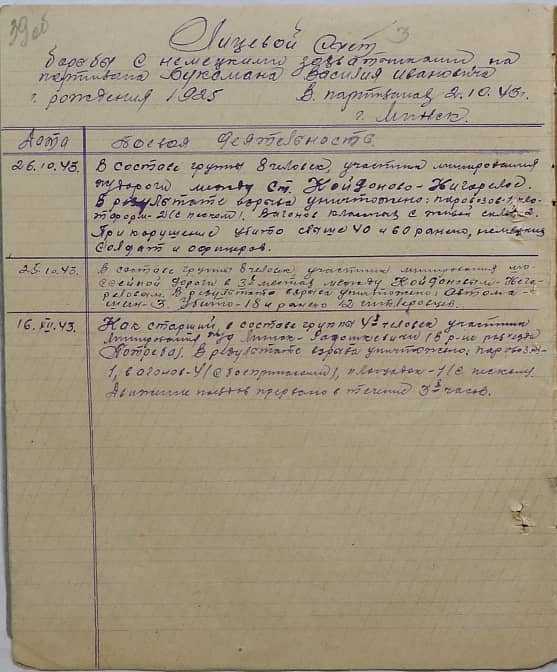 39 об
3
Лицевой счет
борьбы с немецкими захватчиками на
партизана Букомана Василия Ивановича
г. рождения 1925 В партизанах 2.10.43 г.
г. Минск.
Дата Боевая деятельность.
26.10.43. В составе группы 8 человек, участник минирования
ж/дороги между ст. Койдоново-Нигорелое.
В результате взрыва уничтожено: паровозов-1, плат-
форм-2 (с песком), вагонов классных с живой силой-2.
При крушение убито свыше 40 и 60 ранено, немецких
солдат и офицеров.
25.10.43. В составе группы 8 человек, участник минирования шо-
ссейной дороги в 3х местах между Койдоновым-Него-
реловым. В результате взрыва уничтожено: автома-
шин-3. Убито-18 и ранено 12 гитлеровцев.
16.XII.43. Как старший, в составе группы 4х человек участник
минирования ж/д Минск-Радошковичи (в р-не разъезда
). В результате взрыва уничтожено: паровозов-
1, вагонов-4 (с боеприпасами), площадок-1 (с песком).
Движение поездов прервано в течение 3х часов.